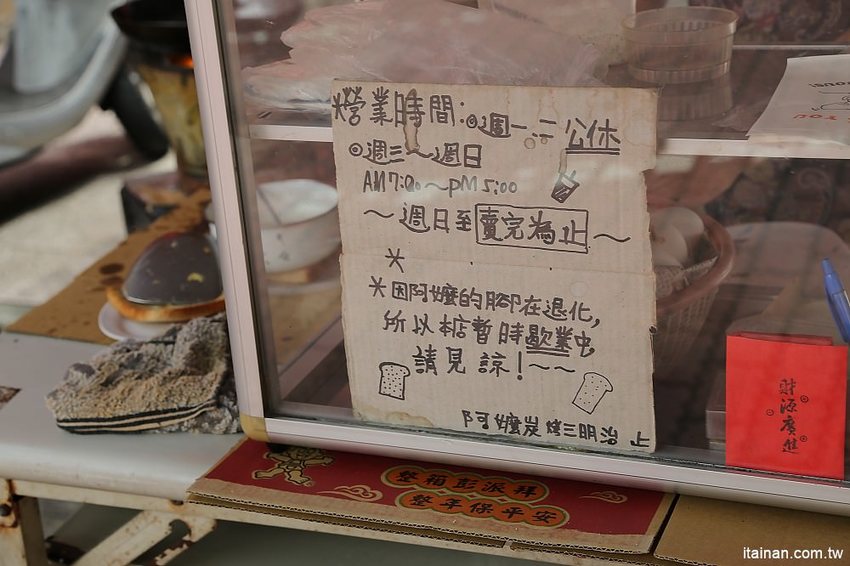 *營業時間:◎週一.二 公休
◎週三～週日
AM 7:00～PM 5:00
～週日至賣完為止～
*
*因阿嬤的腳在退化,
所以本店暫時歇業中,
請見諒!～～
阿嬤炭烤三明治 止
財源廣進
整箱澎派拜
整年保平安
itainan.com.tw